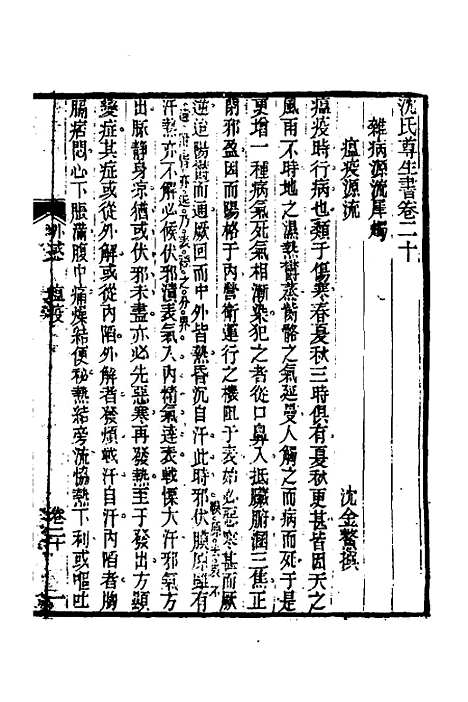 沈氏尊生書卷二十
雜病源流犀燭　沈金鰲撰
瘟疫源流
瘟疫時行病也類于傷寒春夏秋三時俱有夏秋更甚皆因天之
風雨不時地之濕熱鬱蒸傷骼之氣延曼人觸之而病而死于是
更增一種病氣死氣相漸染犯之者從口鼻入抵臟腑溷三焦正
閉邪盈因而陽格于內營衛運行之機阻于表始必惡寒甚而厥
逆迨陽鬱而通厥回而中外皆熱昏沉自汗此時邪伏膜原雖有
膜原去表不
遠附胃亦近乃表裏之分界
汗熱亦不解必候伏邪潰表氣入內精氣達表戰慄大汗邪氣方
出脈靜身涼猶或伏邪未盡亦必先惡寒再發熱至于發出方顯
變症其症或從外解或從內陷外解者發煩戰汗自汗內陷者胸
膈痞悶心下脹滿腹中痛燥結便秘熱結旁流協熱下利或嘔吐
外感
瘟疫
卷二十
一